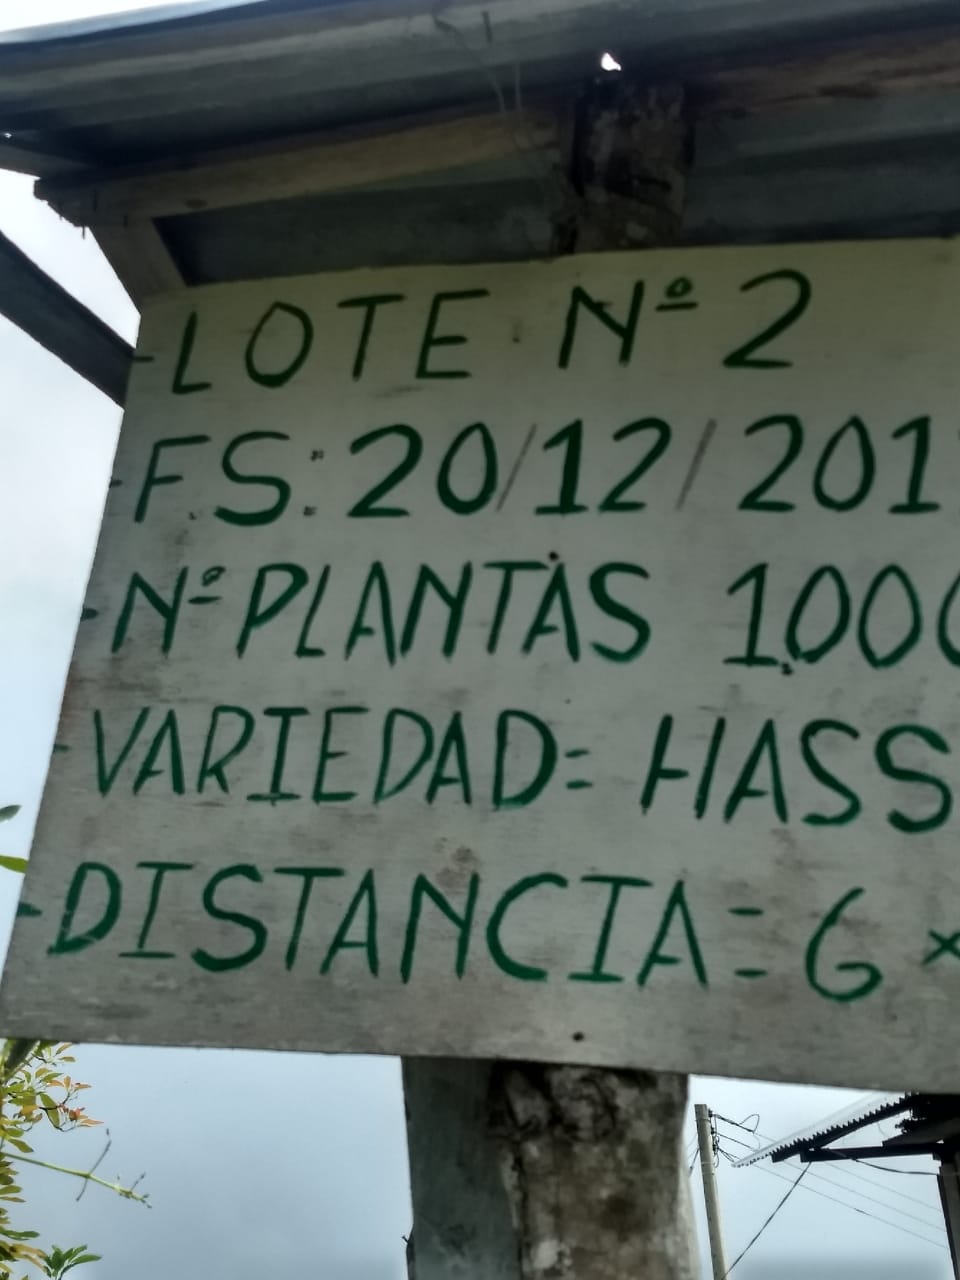 -LOTE Nº 2
-F.S: 20/12/201
-Nº PLANTAS 1.000
-VARIEDAD= HASS
-DISTANCIA= 6 ×